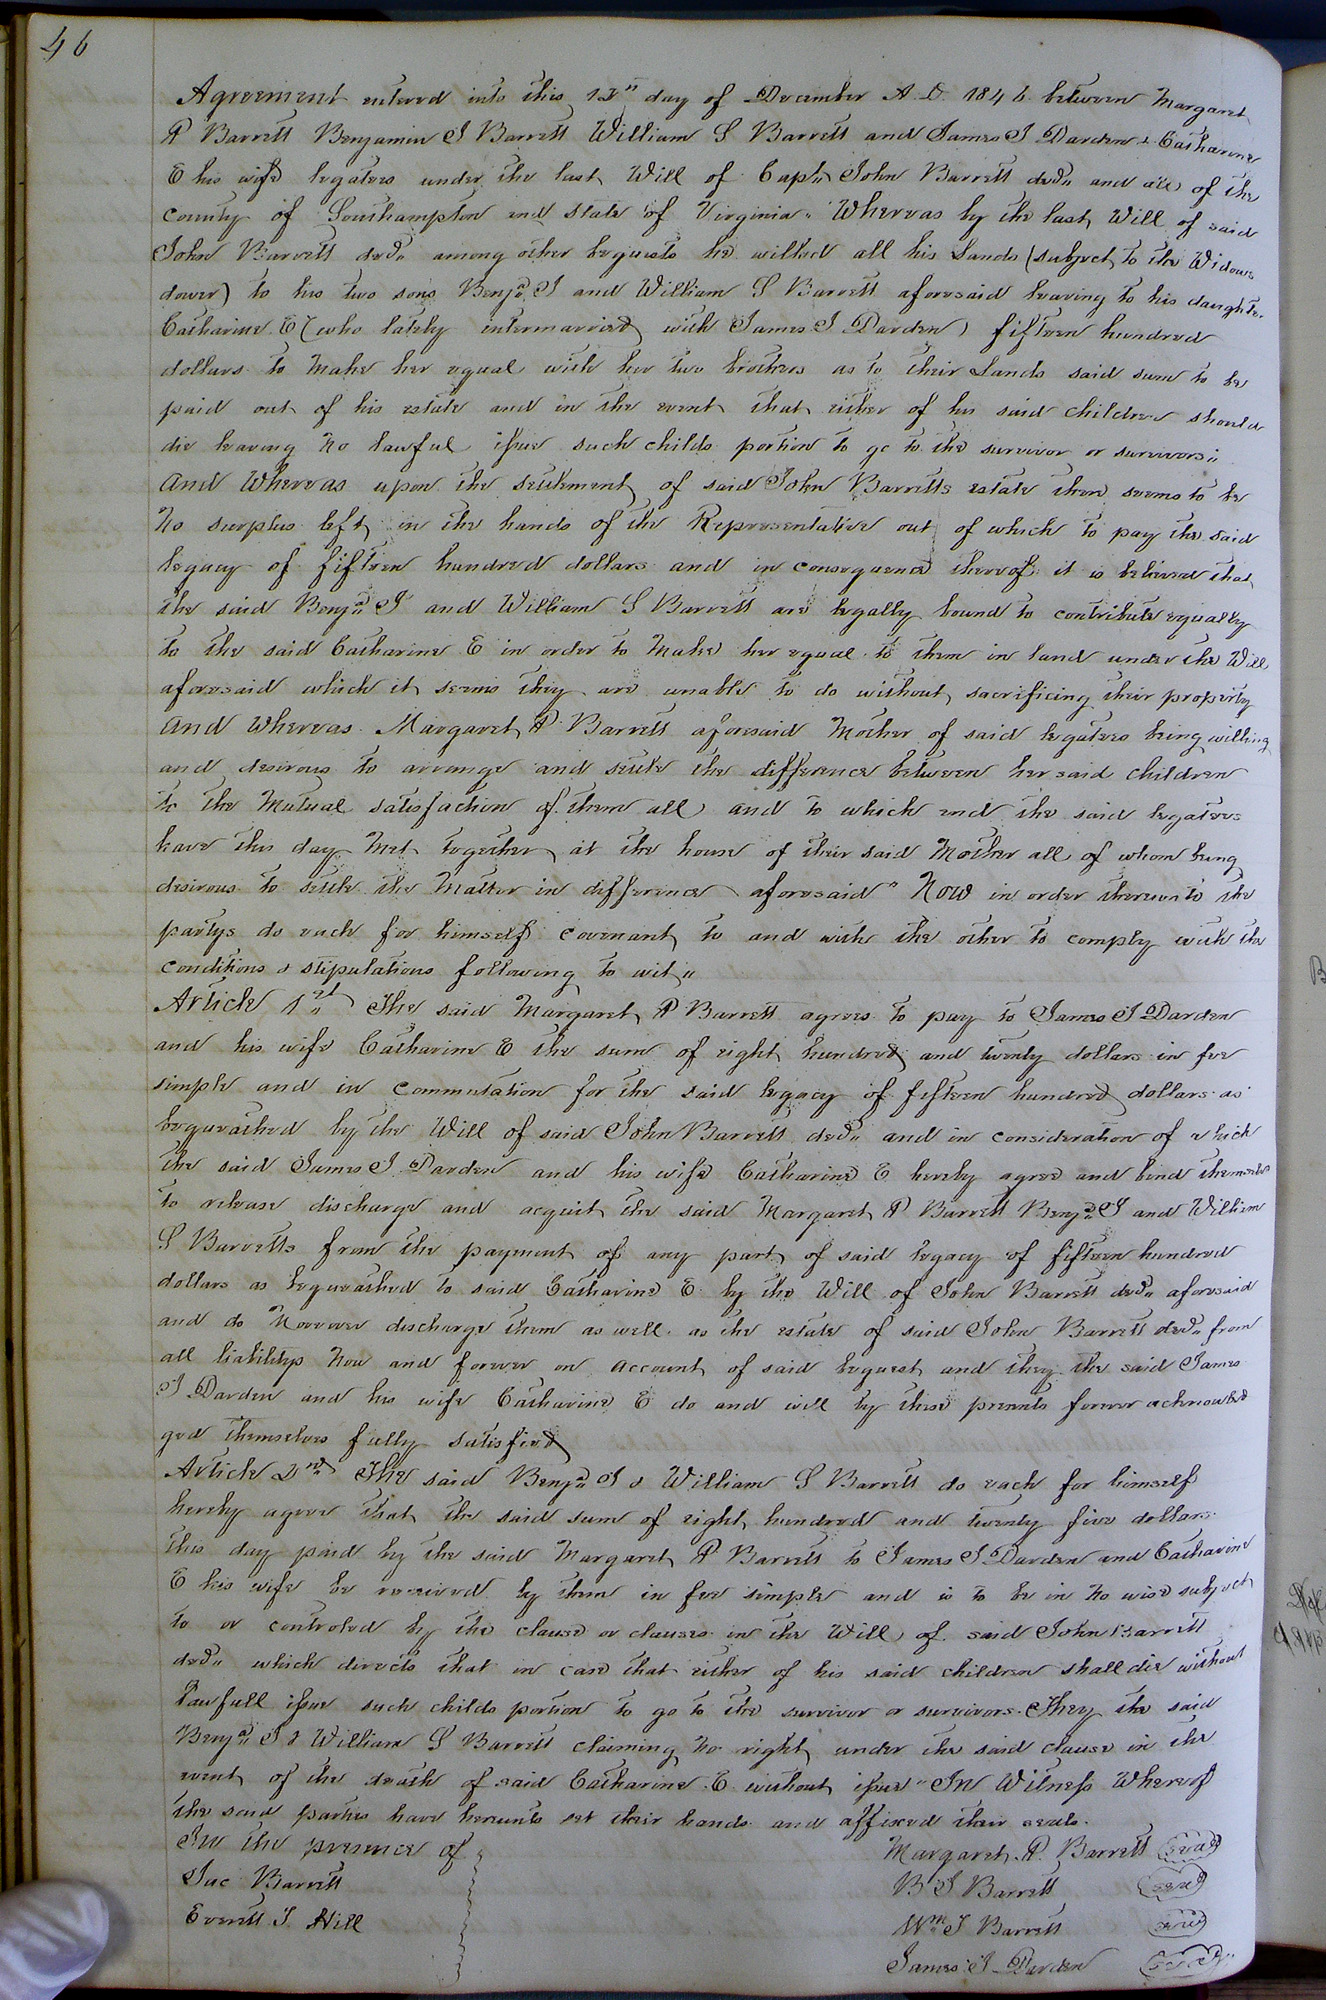 46
Agreement entered into this 12th day of December A. D. 1846 between Margaret
P Barrett Benjamin J Barrett William S Barrett and James J Darden & Catharine
E his wife legatees under the last Will of Capt" John Barrett decd" and all of the
county of Southampton and State of Virginia" Whereas by the last Will of said
John Barrett decd" among other bequests he willed all his Lands (subject to the Widows
dower) to his two sons Benja" J and William S Barrett aforesaid leaving to his daughter
Catharine E (who lately intermarried with James J Darden) fifteen hundred
dollars to make her equal with her two brothers as to their Lands said sum to be
paid out of his estate and in the event that either of his said children should
die leaving no lawful issue such childs portion to go to the survivor or survivors"
And Whereas upon the settlement of said John Barretts estate there seems to be
no surplus left in the hands of the Representative out of which to pay the said
legacy of fifteen hundred dollars and in consequence thereof it is believed that
the said Benja" J and William S Barrett are legally bound to contribute equally
to the said Catharine E in order to make her equal to them in land under the Will
aforesaid which it seems they are unable to do without sacrificing their property
And Whereas Margaret P Barrett aforesaid Mother of said legatees being willing
and desirous to arrange and settle the difference between her said children
to the Mutual satisfaction of them all and to which end the said legatees
have this day Met together at the house of their said Mother all of whom being
desirous to settle the Matter in difference aforesaid" Now in order thereunto the
partys do each for himself covenant to and with the other to comply with the
conditions & stipulations following to wit"
Article 1st" The said Margaret P Barrett agrees to pay to James J Darden
and his wife Catharine E the sum of eight hundred and twenty dollars in fee
simple and in commutation for the said legacy of fifteen hundred dollars as
bequeathed by the Will of said John Barrett decd" and in consideration of which
the said James J Darden and his wife Catharine E hereby agree and bind themselves
to release discharge and acquit the said Margaret P Barrett Benja" J and William
S Barretts from the payment of any part of said legacy of fifteen hundred
dollars as bequeathed to said Catharine E by the Will of John Barrett decd" aforesaid
and do discharge them as well as the estate of said John Barrett decd" from
all liabilitys now and forever on account of said bequest and they the said James
J Darden and his wife Catharine E do and will by these presents forever acknowled
ged themselves fully satisfied
Article 2nd" The said Benja" J & William S Barrett do each for himself
hereby agree that the said sum of eight hundred and twenty five dollars
this day paid by the said Margaret P Barrett to James J Darden and Catharine
E his wife be received by them in fee simple and is to be in no wise subject
to or controled by the clause or clauses in the Will of said John Barrett
decd" which directs that in case that either of his said children shall die without
lawfull issue such childs portion to go to the survivor or survivors. They the said
Benja" J & William S Barrett claiming no right under the said clause in the
event of the death of said Catharine E without issue" In Witness Whereof
the said parties have hereunto set their hands and affixed their seals.
In the presence of Margaret P. Barrett (seal)
Jno Barrett B J Barrett (seal)
Everett J. Hill Wm S Barrett (seal)
James J Darden (seal)